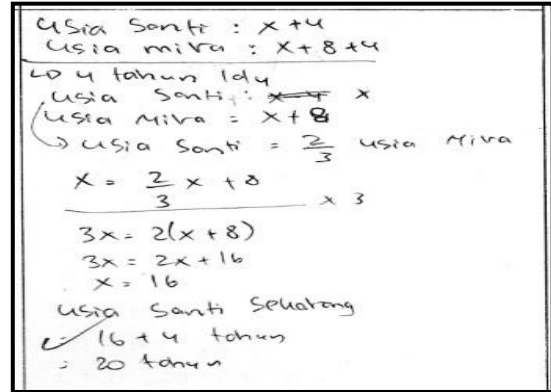 Usia Santi : x + 4
Usia mira : x + 8 + 4
↳ 4 tahun ldu
Usia Santi : x-4 x
Usia Mira = x + 8
↳ Usia Santi = 2/3 usia Mira
x = 2/3 x + 8
x 3
3x = 2(x + 8)
3x = 2x + 16
x = 16
Usia Santi Sekarang
= 16 + 4 tahun
= 20 tahun